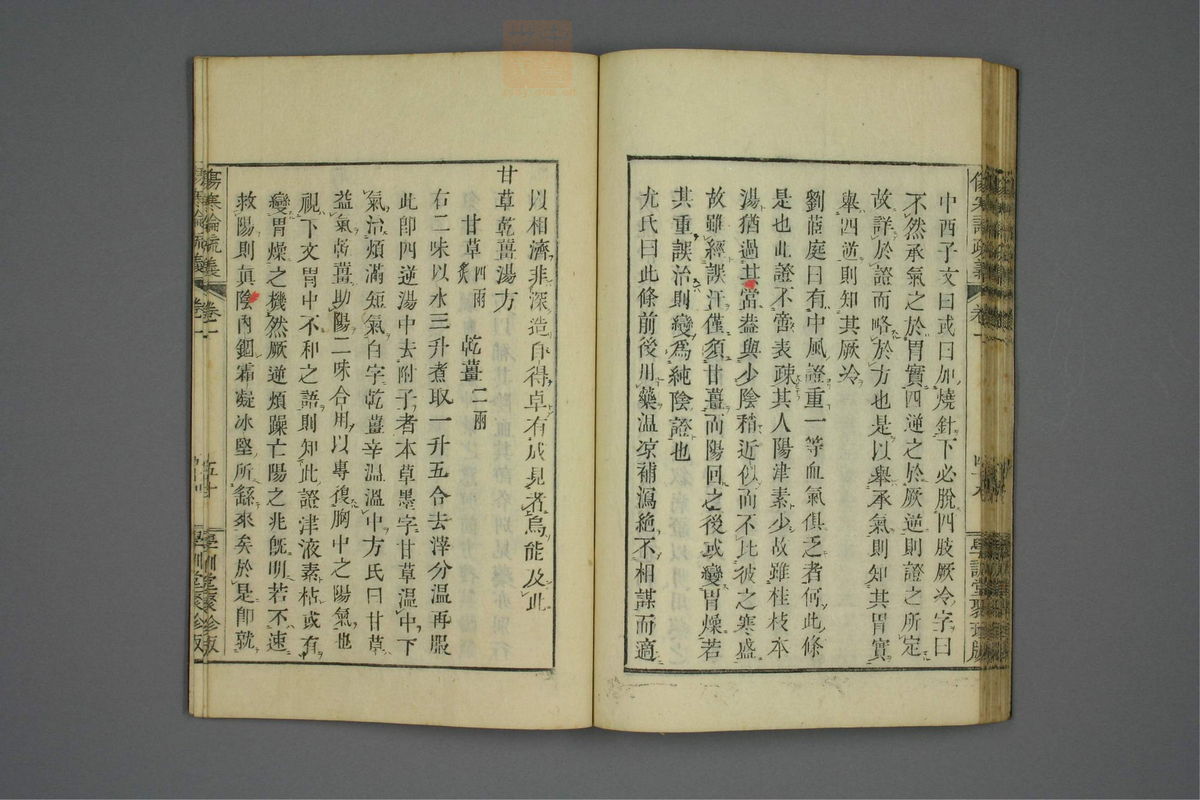 中西子文曰或曰加燒針下必脫四肢厥冷字曰
不然承氣之於胃實四逆之於厥逆則證之所定
故詳於證而略於方也是以舉承氣則知其胃實
舉四逆則知其厥冷
劉茝庭曰有中風證重一等血氣俱乏者何此條
是也此證不啻表疎其人陽津素少故雖桂枝本
湯猶過其當蓋與少陰稍近似而不比彼之寒盛
故雖經誤汗僅須甘薑而陽回之後或變胃燥若
其重誤治則變爲純陰證也
尤氏曰此條前後用藥溫凉補瀉絶不相謀而適
以相濟非深造自得卓有成見者烏能及此
甘草乾薑湯方
甘草四兩炙 乾薑二兩
右二味以水三升煮取一升五合去滓分溫再服
此卽四逆湯中去附子者本草墨字甘草溫中下
氣治煩滿短氣白字乾薑辛溫溫中方氏曰甘草
益氣乾薑助陽二味合用以專復胸中之陽氣也
視下文胃中不和之語則知此證津液素枯或有
變胃燥之機然厥逆煩躁亡陽之兆旣明若不速
救陽則眞陰內錮霜凝冰堅所繇來矣於是卽就
傷寒論疏義 卷二 五十 學訓堂聚珍版